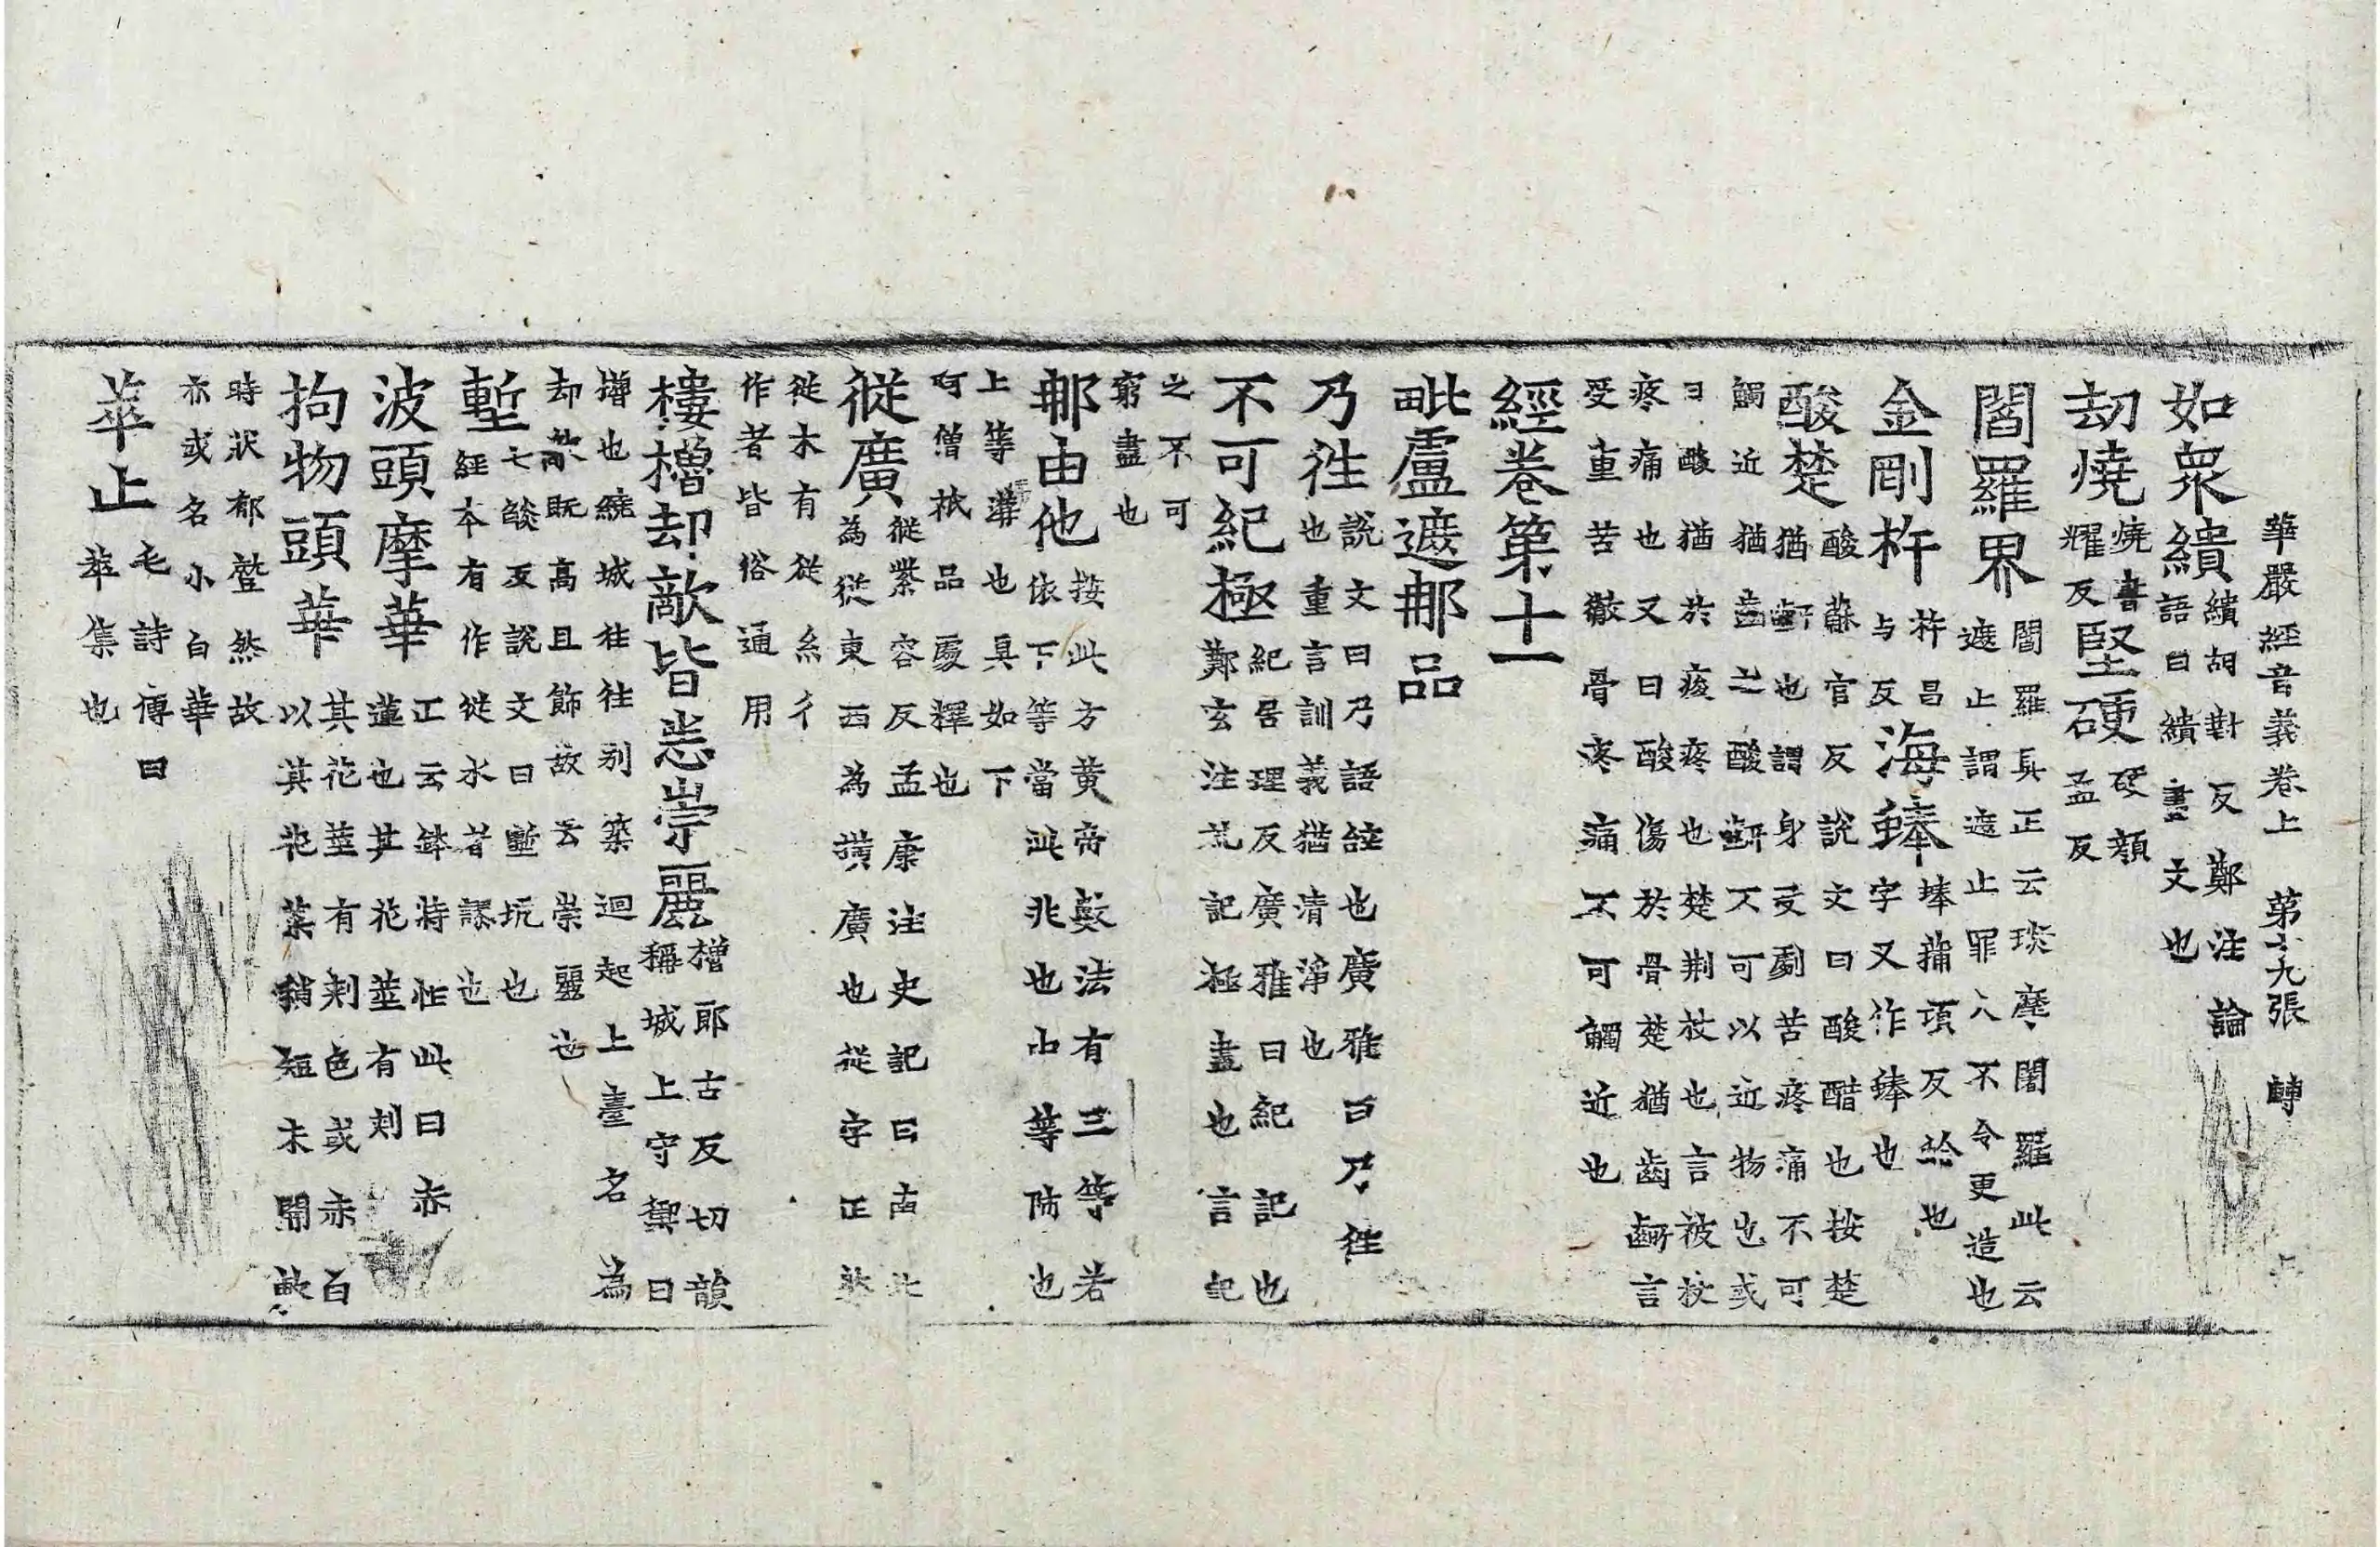 華嚴經音義卷上　第十九張　轉
如衆繢繢胡對反鄭注論
語曰繢畫文也
劫燒燒書曜反堅硬硬顔孟反
閻羅界閻羅具正云琰摩閻羅此云
遮止謂遮止罪人不令更造也
金剛杵杵昌与反海蜯蜯蒲項反蛤也
字又作蜯也
酸楚酸蘇官反說文曰酸醋也按楚
猶也謂身受劇苦疼痛不可
觸近猶齒之酸不可以近物也或
曰酸猶於痠疼也楚荆杖也言被杖
疼痛也又曰酸傷於骨楚猶齒齭言
受重苦徹骨疼痛不可觸近也
經卷第十一
毗盧遮那品
乃往說文曰乃語詞也廣雅曰乃往
也重言訓義猶清淨也
不可紀極紀居理反廣雅曰紀記也
鄭玄注記極盡也言記
之不可
窮盡也
那由他按此方黃帝數法有三等若
依下等當此兆也中等陔也
上等溝也具如下
阿僧祇品處釋也
從廣從紫容反孟康注史記曰南北
為從東西為橫廣也從字正
從木有從糸彳
作者皆俗通用
樓櫓却敵皆悉崇麗櫓郎古反切韻
稱城上守禦曰
櫓也繞城往往別築迴起上臺名為
却敵既高且飾故云崇麗也
塹七艶反說文曰塹坑也
經本有作從水者謬也
波頭摩華正云鉢特忙此曰赤
蓮也其花莖有刺
拘物頭華其花莖有刺色或赤白
以其花葉稍短未開敷
時狀郁蹙然故
亦或名小白華
萃止毛詩傳曰
萃集也